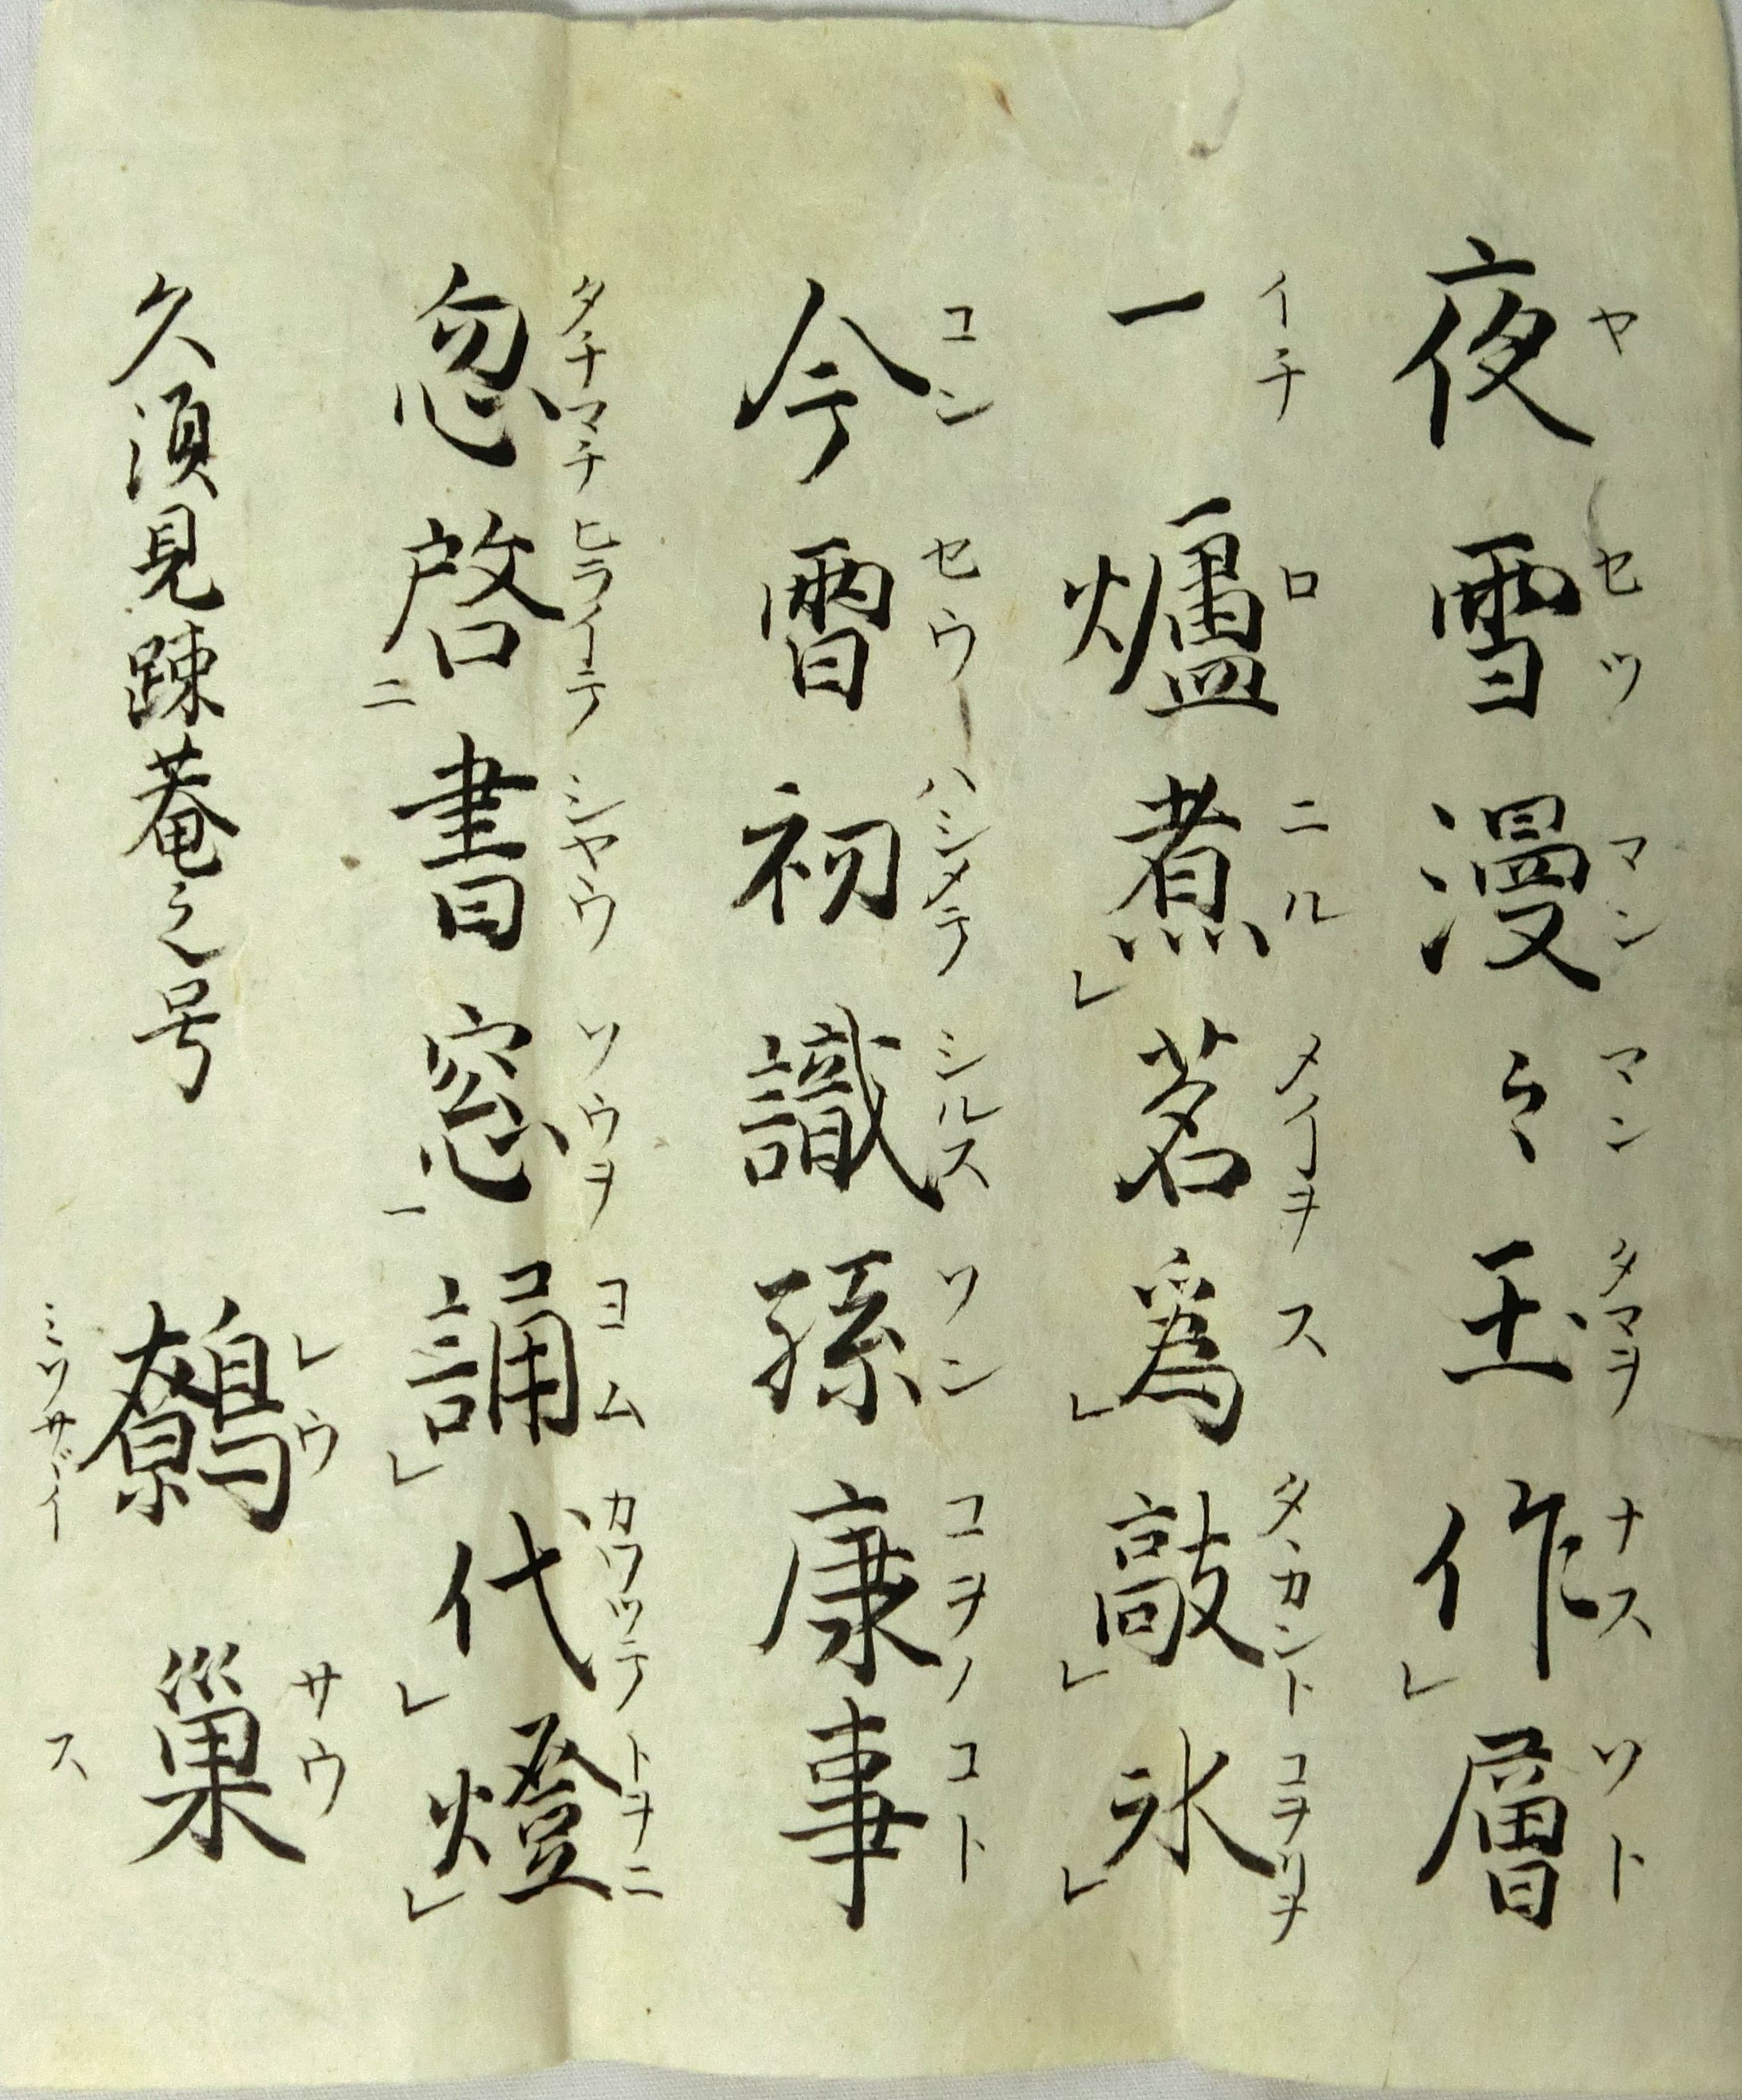 ヤ セツ マン マン タマヲ ナス ソト
夜雪漫〻玉作レ層
イチ ロ ニル メイヲ ス タヽカント コヲリヲ
一爐煮レ茗爲レ敲レ氷レ
コン セウ ハシメテ シルス ソン コヲノ コト
今霄初識孫康事
タチマチ ヒライテ シヤウ ソウヲ ヨム カワツテ トヲニ
忽啓二書窓一誦レ代レ燈レ
久須見踈菴之号
レウ サウ
鷯巢
ミソサヾイ ス